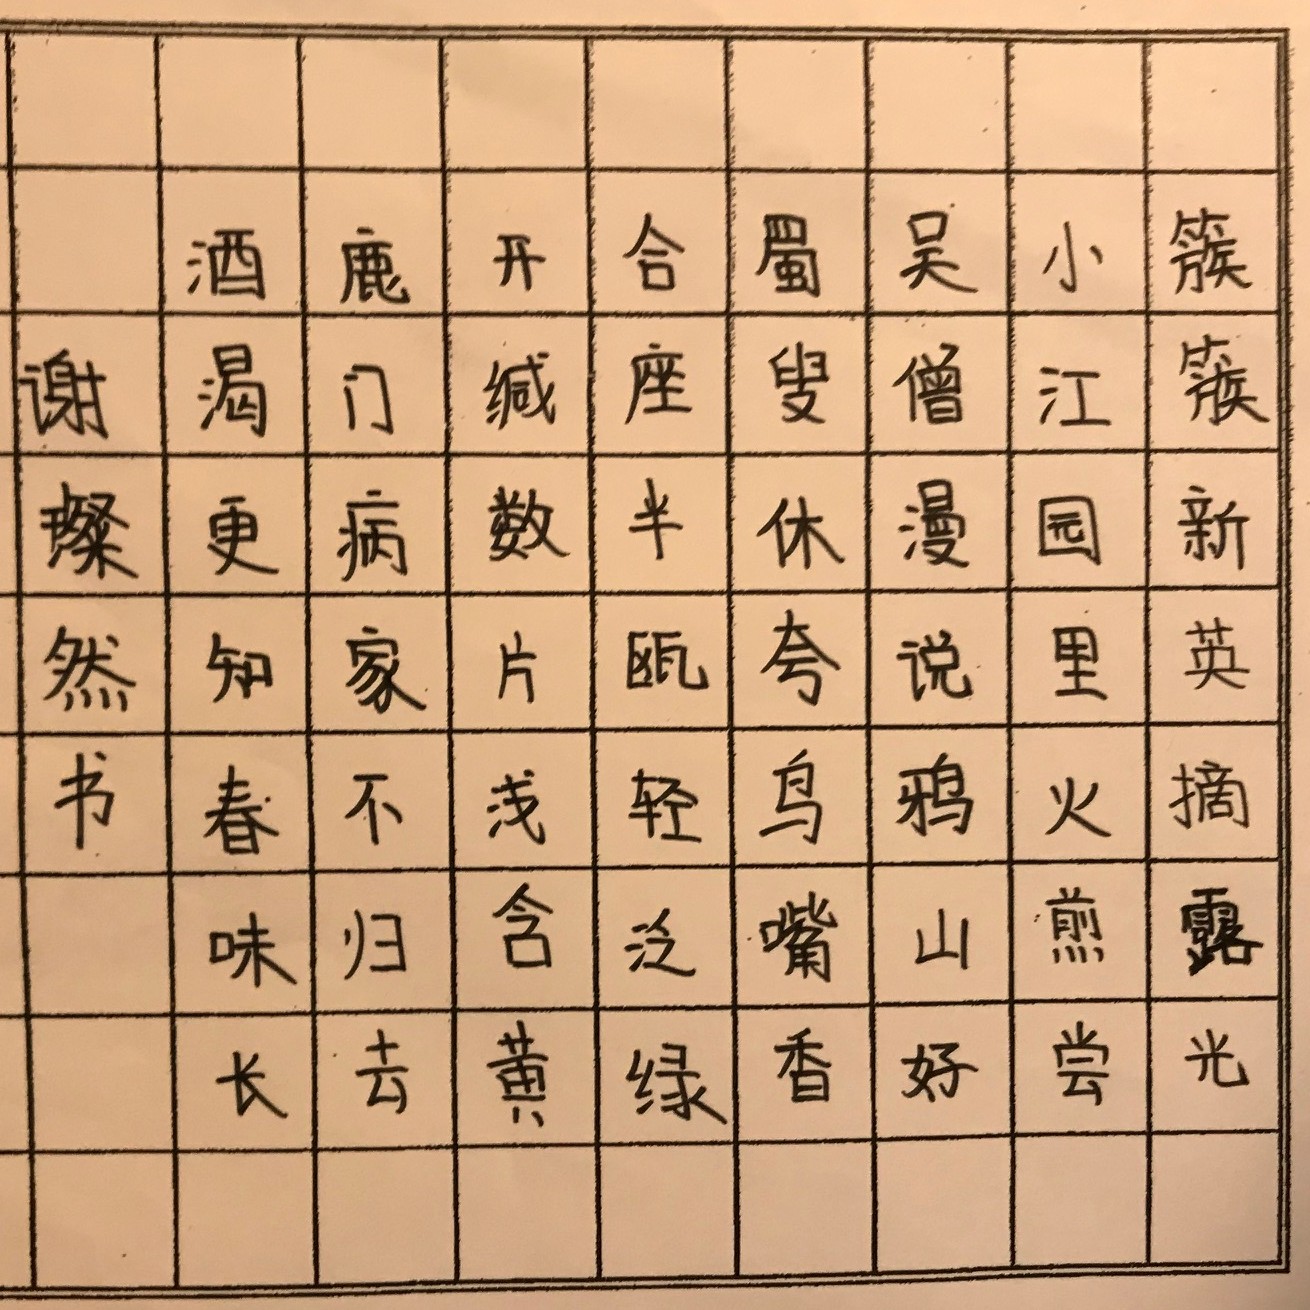 簇簇新英摘露光
小江园里火煎尝
吴僧漫说鸦山好
蜀叟休夸鸟嘴香
合座半瓯轻泛绿
开缄数片浅含黄
鹿门病家不归去
酒渴更知春味长
谢璨然书